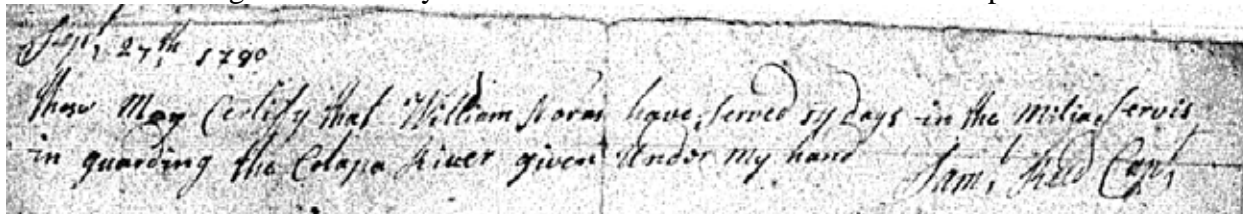 Sept 27th 1790
these May Certify that William Norris have served 59 Days in the Militae servis
in guarding the Colapa River given under my hand Saml Reed Capt